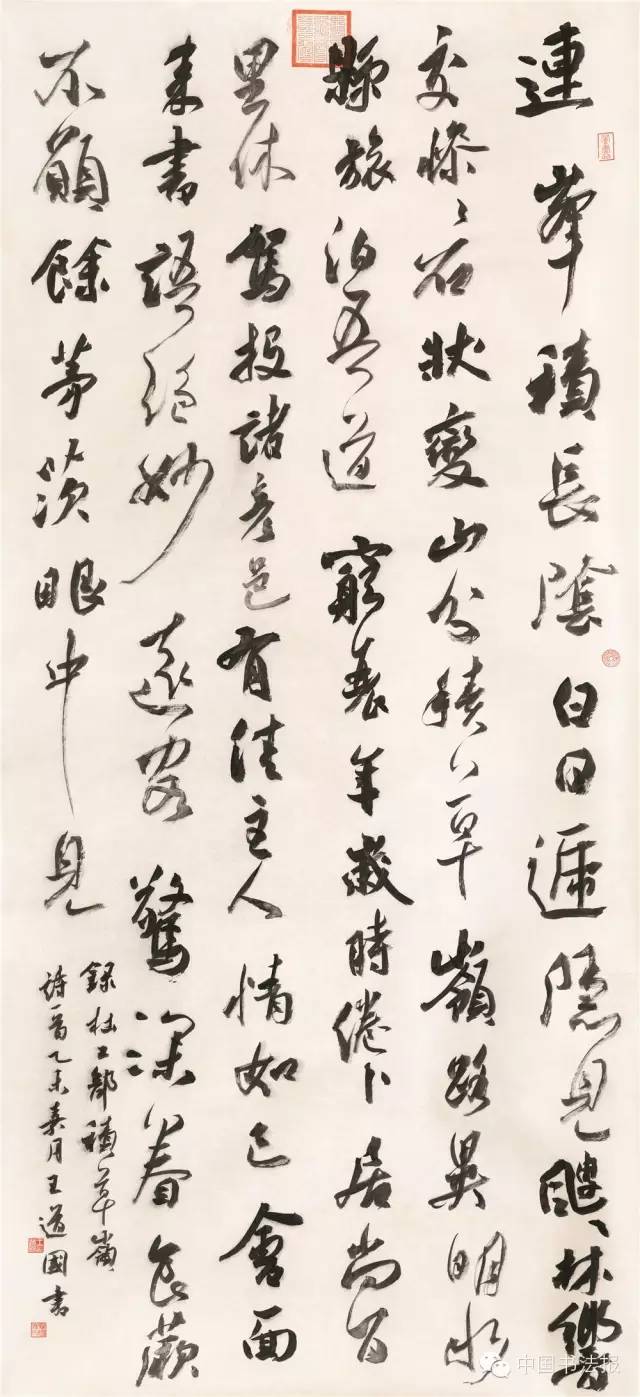 連峯積長陰白日遞隱見颼〻林響
交慘〻石狀變山分積草嶺路異明水
縣旅泊吾道窮衰年歲時倦卜居尚百
里休駕投諸彥邑有佳主人情如已會面
來書語絕妙遠客驚深眷食蕨
不願餘茅茨眼中見
錄杜工部積草嶺
詩一首乙未春月王道國書
中国书法报